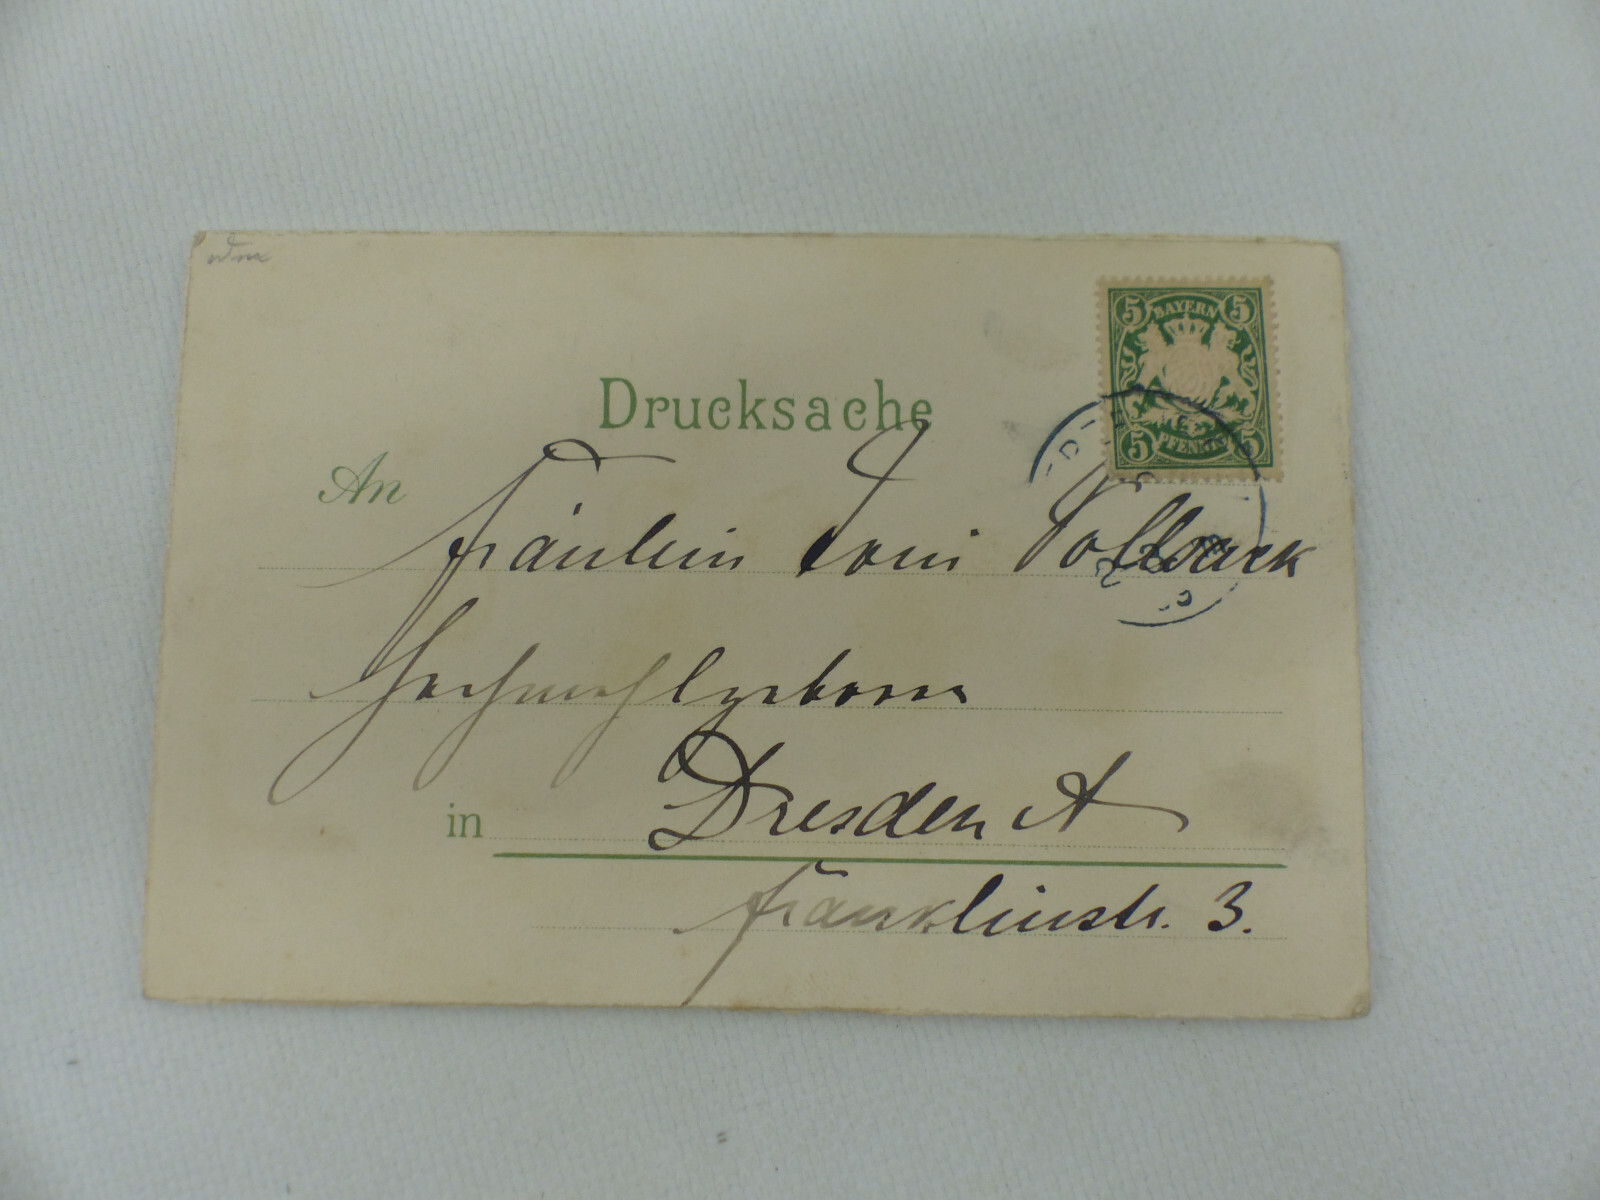 5 BAYERN 5
5 PFENNIG 5
Drucksache
An
Fräulein Toni
Hochwohlgeboren
in Dresden A
Franklinstr. 3.